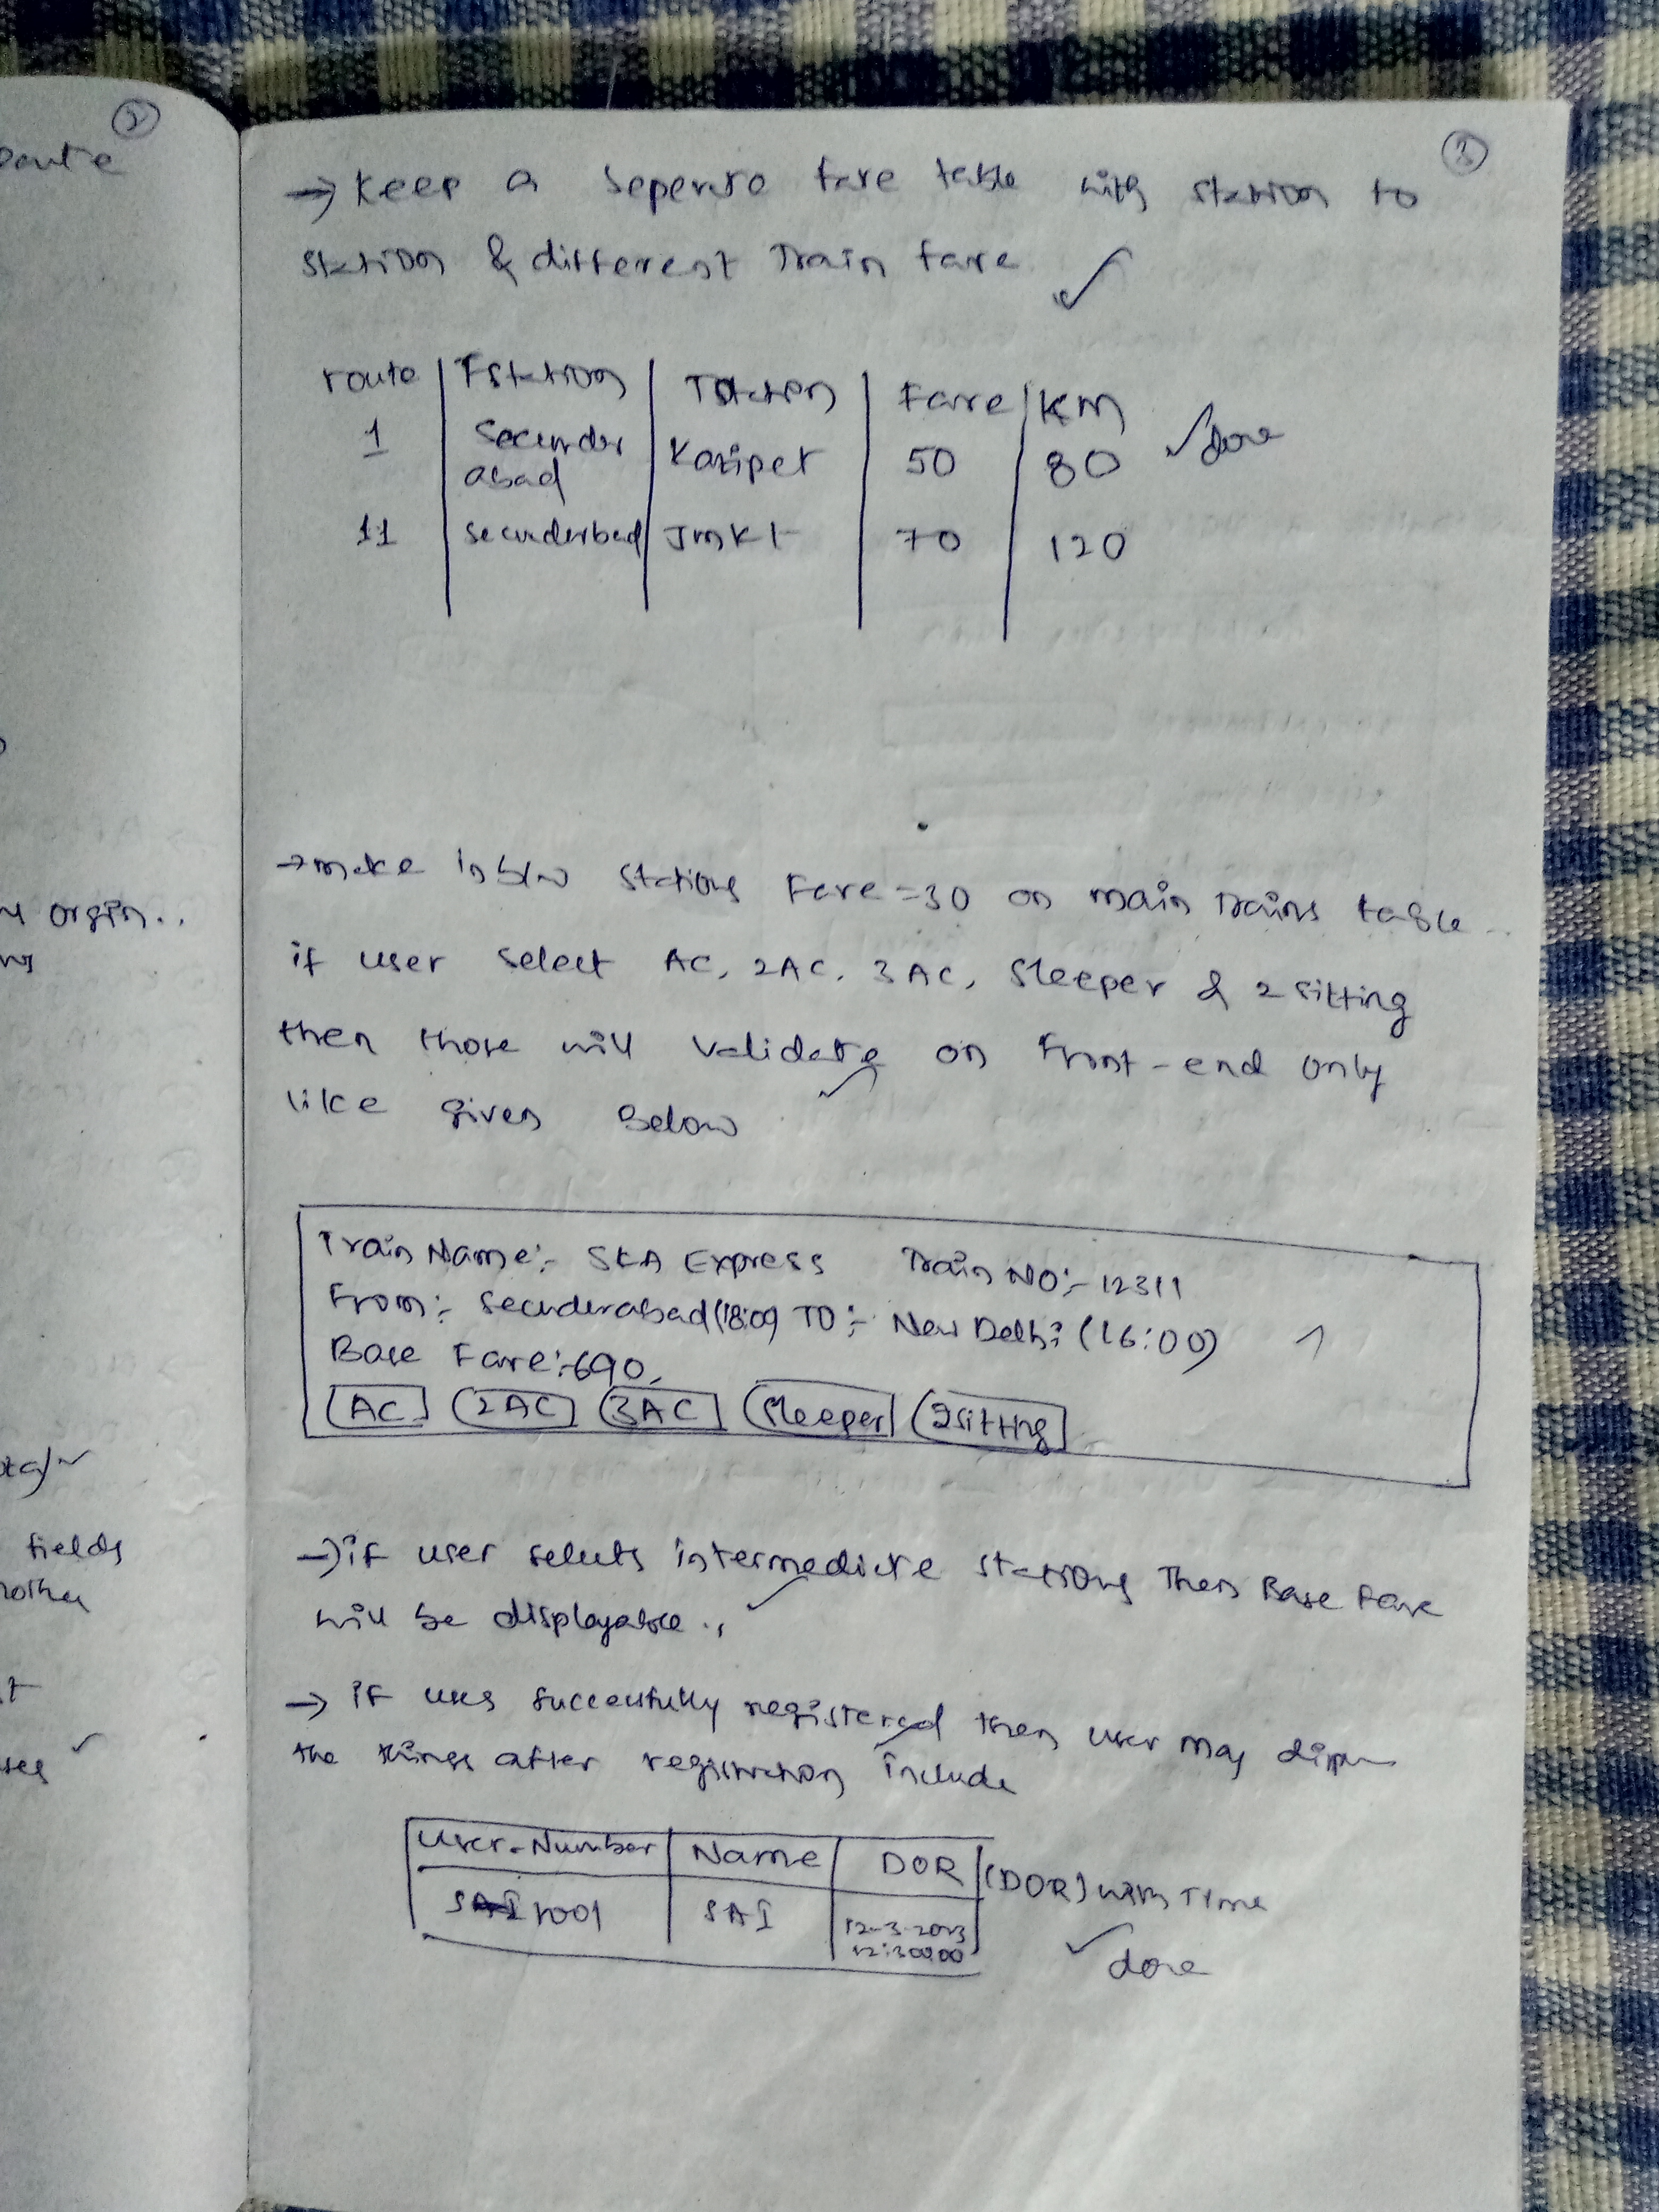 2
oute
y orgin..
fields
3
→ Keep a Seperate fare table with station to
station & different Train fare ✓
route | Fstation | Tstation | Fare | KM
1 | Secunder abad | Kazipet | 50 | 80 ✓ done
11 | secunderbad | Jmkt | 70 | 120
→ make in b/w stations Fare=30 on main trains table..
if user select AC, 2AC, 3AC, Sleeper & 2 sitting
then those will validate on Front-end only
like given below ✓
Train Name:- SKA Express Train NO:- 12311
From:- Secunderabad (18:00) TO:- New Delhi (16:00)
Base Fare:-690
AC 2AC 3AC Sleeper 2sitting
→ if user seluts intermediate stations Then Base Fare
will be displayable.. ✓
→ if user successfully registered then user may
the things after registration include
User-Number | Name | DOR (DOR) with Time
1001 | SAI | 12-3-2023
12:30:00 ✓ done